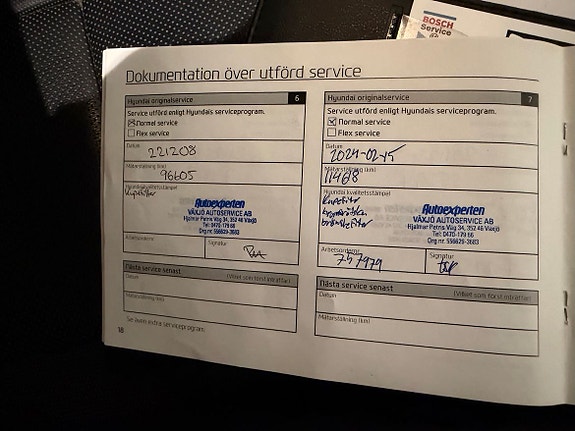 BOSCH
Service
Dokumentation över utförd service
Hyundai originalservice 6
Service utförd enligt Hyundais serviceprogram.
Normal service
Flex service
Datum
221208
Mätarställning (km)
96605
Hyundai kvalitetsstämpel
Kupefilter
Autoexperten
VÄXJÖ AUTOSERVICE AB
Hjalmar Petris Väg 34, 352 46 Växjö
Tel: 0470-179 66
Org.nr: 556620-3683
Arbetsordernr
Signatur
Nästa service senast (Vilket som först inträffar)
Datum
Mätarställning (km)
Se även extra serviceprogram
18
Hyundai originalservice 7
Service utförd enligt Hyundais serviceprogram.
Normal service
Flex service
Datum
2024-02-15
Mätarställning (km)
11468
Hyundai kvalitetsstämpel
Kupefilter
bromsvätska
bränslefilter
Autoexperten
VÄXJÖ AUTOSERVICE AB
Hjalmar Petris Väg 34, 352 46 Växjö
Tel: 0470-179 66
Org.nr: 556620-3683
Arbetsordernr
757979
Signatur
Nästa service senast (Vilket som först inträffar)
Datum
Mätarställning (km)